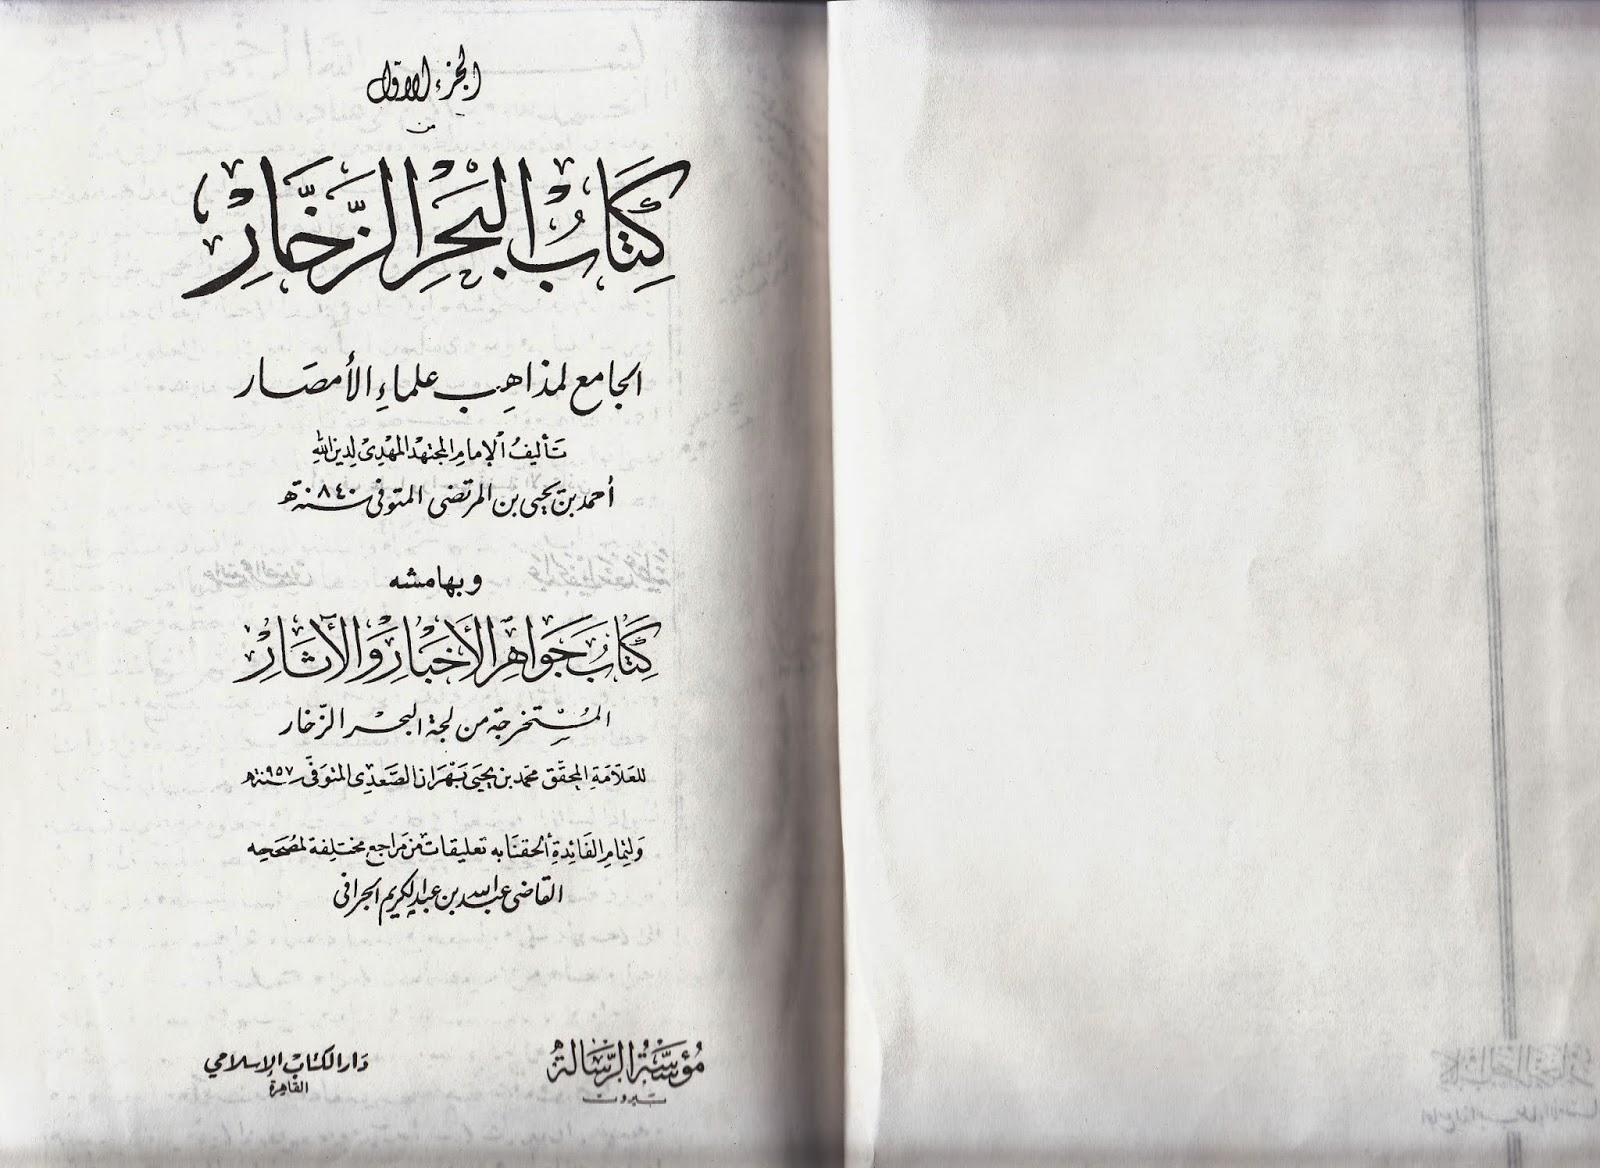 الجزء الأول
من
كِتَابُ البَحْرِ الزَّخَّارِ
الجامع لمذاهِب علماءِ الأمصَار
تَأليفُ الإمامِ المجتهد المهْدِى لِدينِ اللهِ
أحمد بن يحيى بن المرتضى المتوفى سنة ٨٤٠ هـ
وبهامشه
كِتَابُ جَوَاهِرِ الأَخْبَارِ وَالآثَارِ
المُسْتَخرجَة من لجة البحر الزّخار
للعَلاّمَةِ المحقّق محمّد بن يحيَى بَهْرَان الصَّعْدِى المتوَفَّى سنة ٩٥٧ هـ
وَلِتمامِ الفَائِدةِ ألحقنَا به تعليقَات من مَراجع مختلِفة لمصَحّحِه
القاضى عبد الله بن عبد الكريم الجرافى
مُؤسَّسَة الرِّسَالة
بَيروت
دَار الكتَابْ الإسلامي
القاهِرة